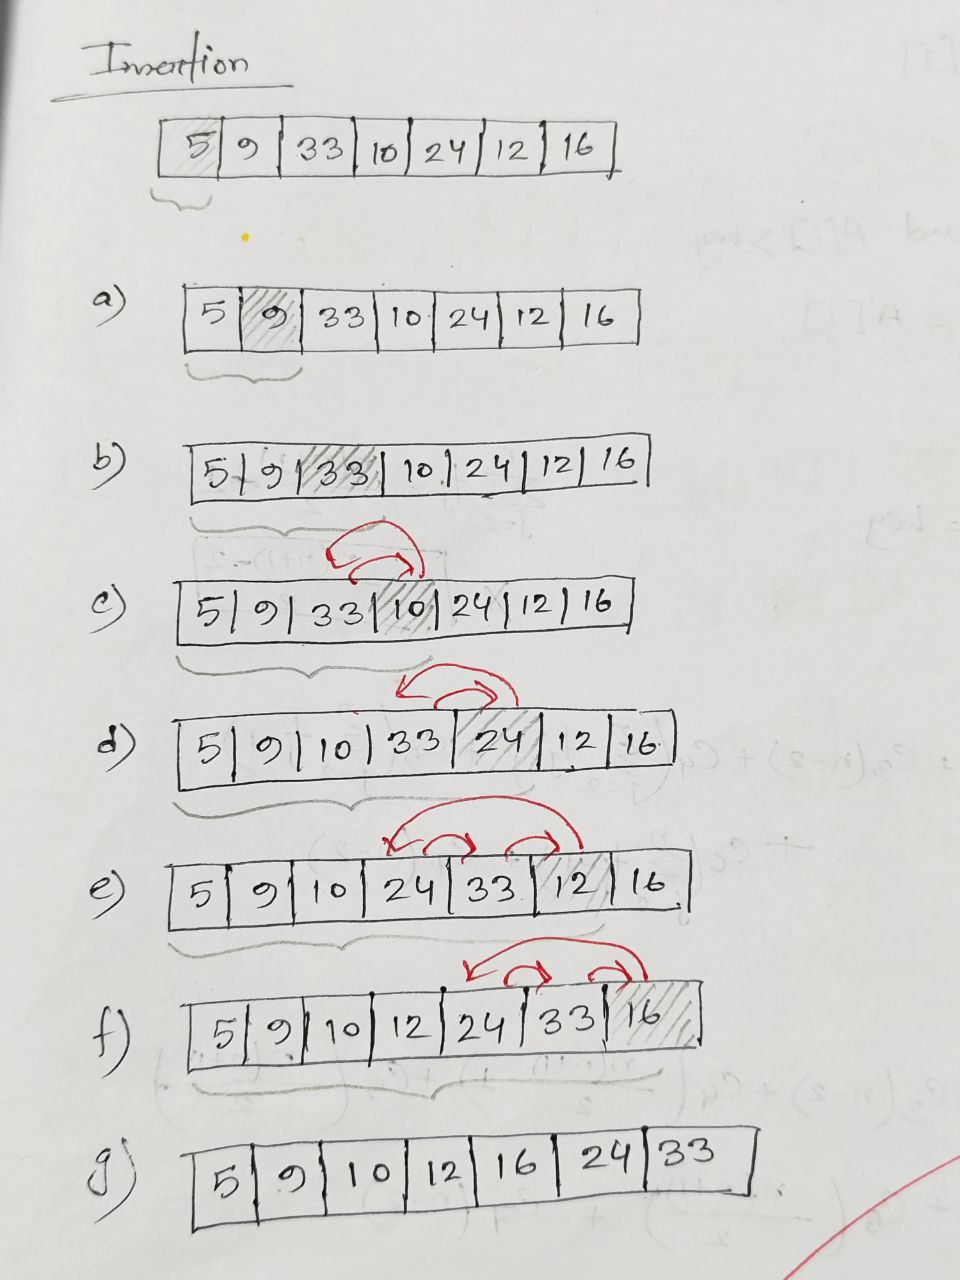 Insertion
5 9 33 10 24 12 16
a) 5 9 33 10 24 12 16
b) 5 9 33 10 24 12 16
c) 5 9 33 10 24 12 16
d) 5 9 10 33 24 12 16
e) 5 9 10 24 33 12 16
f) 5 9 10 12 24 33 16
g) 5 9 10 12 16 24 33